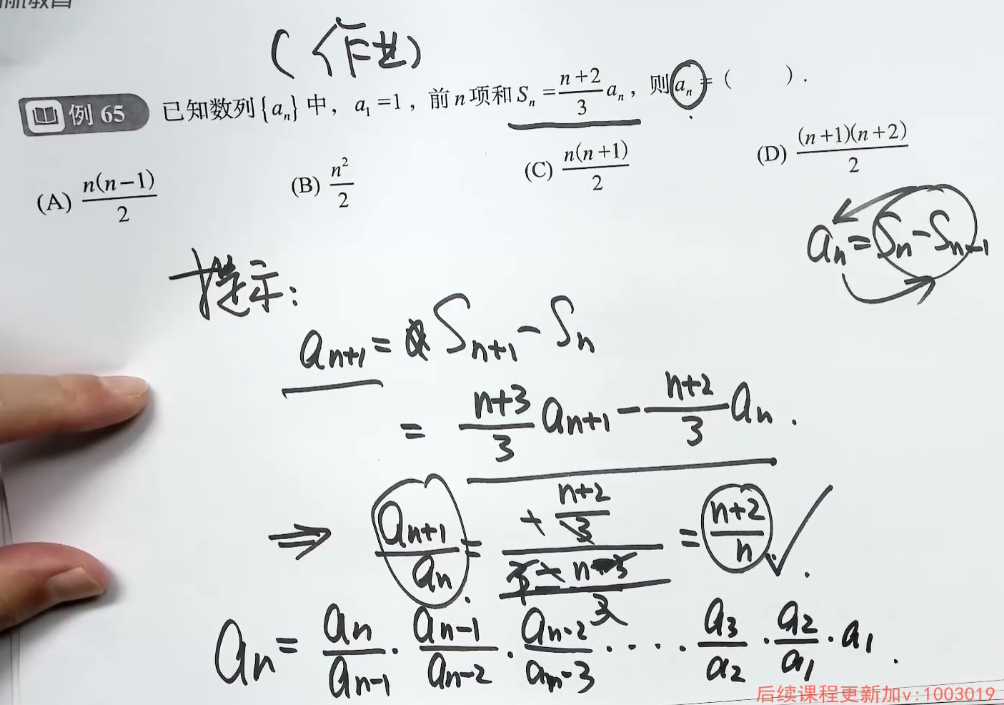 (作业)
例 65 已知数列{aₙ}中，a₁=1，前n项和Sₙ=(n+2)/3 aₙ，则aₙ=(    ).
(A) n(n−1)/2 (B) n²/2 (C) n(n+1)/2 (D) (n+1)(n+2)/2
aₙ=Sₙ−Sₙ₋₁
提示:
aₙ₊₁=Sₙ₊₁−Sₙ
=(n+3)/3 aₙ₊₁−(n+2)/3 aₙ.
⇒ aₙ₊₁/aₙ= +(n+2)/3 / = (n+2)/n ✓.
aₙ=aₙ/aₙ₋₁·aₙ₋₁/aₙ₋₂·aₙ₋₂/aₙ₋₃·····a₃/a₂·a₂/a₁·a₁.
后续课程更新加v:1003019